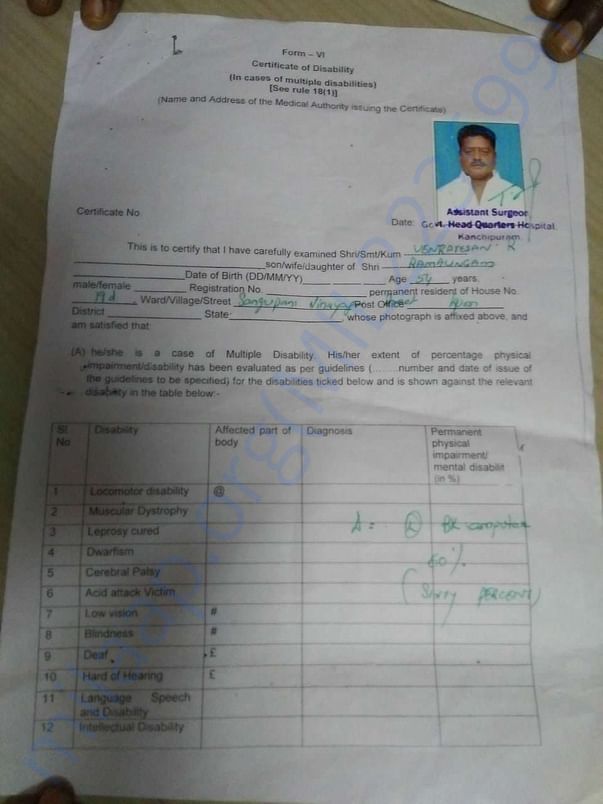 Form – VI
Certificate of Disability
(In cases of multiple disabilities)
[See rule 18(1)]
(Name and Address of the Medical Authority issuing the Certificate)
Assistant Surgeon
Certificate No. Date: Govt. Head Quarters Hospital,
Kanchipuram.
This is to certify that I have carefully examined Shri/Smt/Kum VENKATESAN R
son/wife/daughter of Shri RAMALINGAM
Date of Birth (DD/MM/YY) Age 54 years,
male/female Registration No. permanent resident of House No.
19d, Ward/Village/Street Post Office
District State: , whose photograph is affixed above, and
am satisfied that:
(A) he/she is a case of Multiple Disability. His/her extent of percentage physical
impairment/disability has been evaluated as per guidelines (........number and date of issue of
the guidelines to be specified) for the disabilities ticked below and is shown against the relevant
disability in the table below:-
Sl. No Disability Affected part of body Diagnosis Permanent physical impairment/ mental disabilit (in %)
1 Locomotor disability @
2 Muscular Dystrophy
3 Leprosy cured
4 Dwarfism
60%
5 Cerebral Palsy
6 Acid attack Victim (SIXTY PERCENT)
7 Low vision #
8 Blindness #
9 Deaf £
10 Hard of Hearing £
11 Language Speech and Disability
12 Intellectual Disability